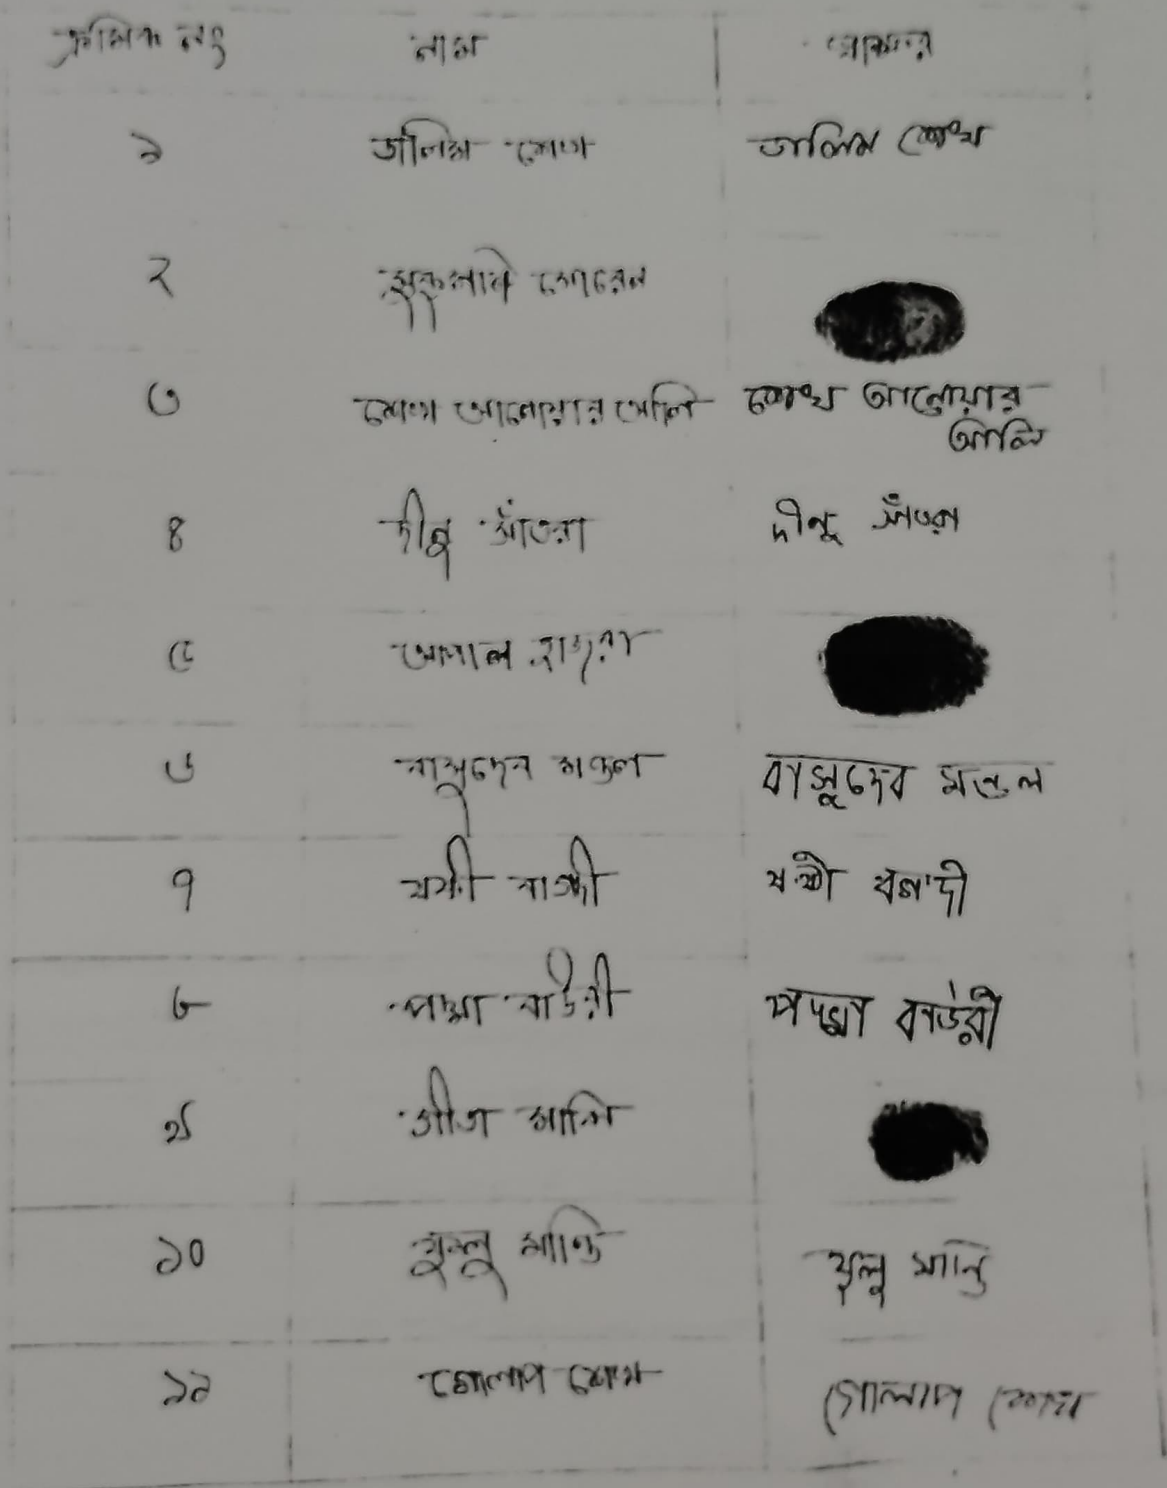 ক্রমিক নং নাম স্বাক্ষর
১ জলিম শেখ জলিম শেখ
২ সোরেন
৩ শেখ আনোয়ার আলি শেখ আনোয়ার
আলি
৪ দীনু সাঁতরা দীনু সাঁতরা
৫ গোপাল হাজরা
৬ বাসুদেব মণ্ডল বাসুদেব মণ্ডল
৭ ষষ্ঠী বাগ্দী ষষ্ঠী বাগদী
৮ পদ্মা বাউরী পদ্মা বাউরী
৯
১০ মান্ডি
১১ গোলাপ শেখ গোলাপ শেখ